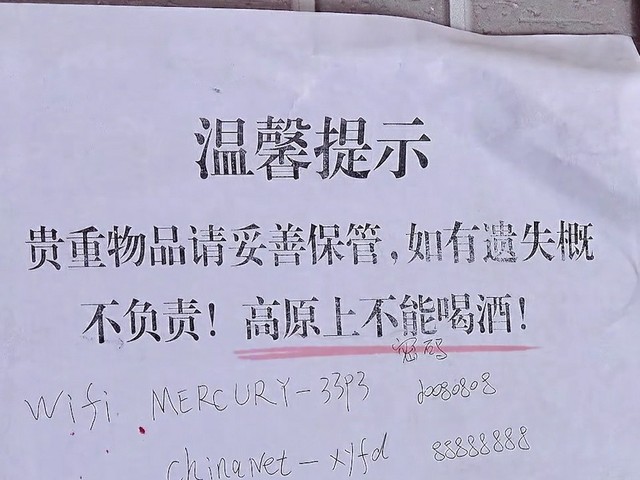 温馨提示
贵重物品请妥善保管,如有遗失概
不负责!高原上不能喝酒!
密码
Wifi MERCURY-33P3 20080808
ChinaNet-xyfd 88888888